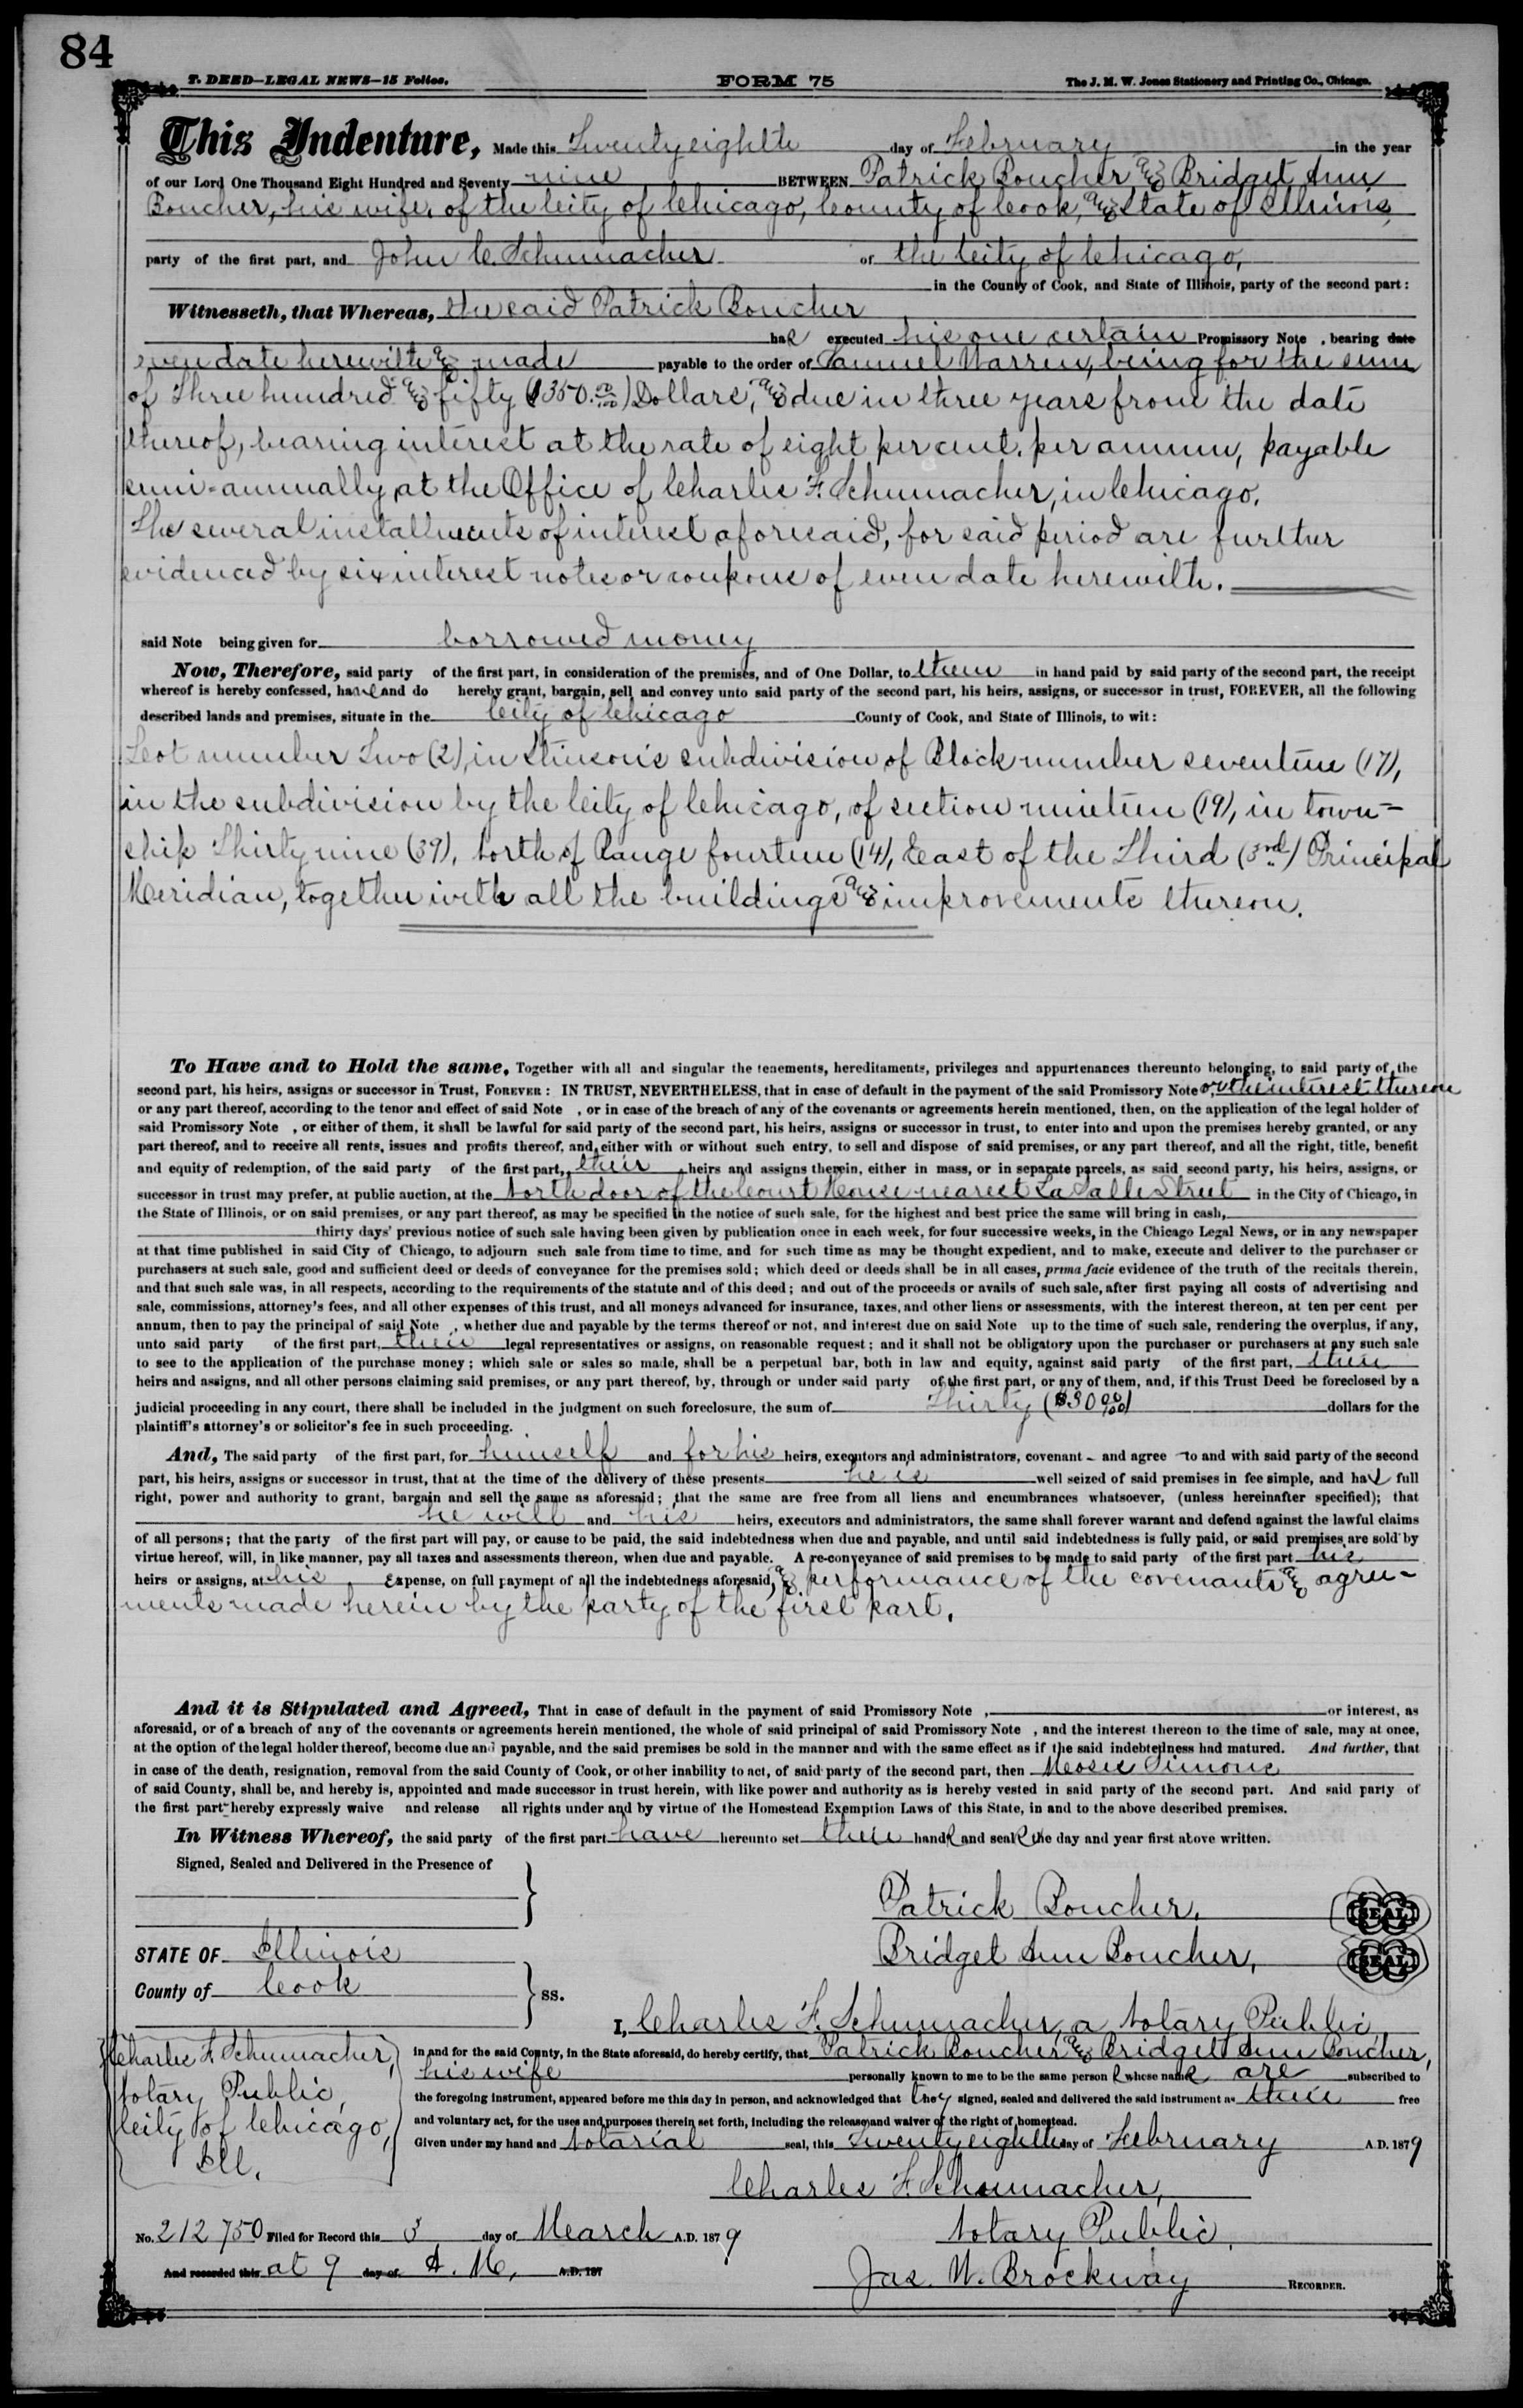 84
T. DEED—LEGAL NEWS—15 Folios. FORM 75 The J. M. W. Jones Stationery and Printing Co., Chicago.
This Indenture, Made this Twenty eighth day of February in the year
of our Lord One Thousand Eight Hundred and Seventy nine BETWEEN Patrick Boucher and Bridget Ann
Boucher, his wife, of the City of Chicago, County of Cook, and State of Illinois,
party of the first part, and John C. Schumacher of the City of Chicago,
in the County of Cook, and State of Illinois, party of the second part:
Witnesseth, that Whereas, the said Patrick Boucher
has executed his one certain Promissory Note , bearing date
even date herewith and made payable to the order of Samuel Warren, being for the sum
of Three hundred and fifty ($350.00/100) Dollars, and due in three years from the date
thereof, bearing interest at the rate of eight per cent. per annum, payable
semi-annually, at the Office of Charles F. Schumacher, in Chicago.
The several installments of interest aforesaid, for said period are further
evidenced by six interest notes or coupons of even date herewith.
said Note being given for borrowed money
Now, Therefore, said party of the first part, in consideration of the premises, and of One Dollar, to them in hand paid by said party of the second part, the receipt
whereof is hereby confessed, have and do hereby grant, bargain, sell and convey unto said party of the second part, his heirs, assigns, or successor in trust, FOREVER, all the following
described lands and premises, situate in the City of Chicago County of Cook, and State of Illinois, to wit:
Lot number Two (2), in Stinson's subdivision of Block number seventeen (17),
in the subdivision by the City of Chicago, of section nineteen (19), in town-
ship Thirty nine (39), North of Range fourteen (14), East of the Third (3rd) Principal
Meridian, together with all the buildings and improvements thereon.
To Have and to Hold the same, Together with all and singular the tenements, hereditaments, privileges and appurtenances thereunto belonging, to said party of the
second part, his heirs, assigns or successor in Trust, FOREVER: IN TRUST, NEVERTHELESS, that in case of default in the payment of the said Promissory Note or the interest thereon
or any part thereof, according to the tenor and effect of said Note , or in case of the breach of any of the covenants or agreements herein mentioned, then, on the application of the legal holder of
said Promissory Note , or either of them, it shall be lawful for said party of the second part, his heirs, assigns or successor in trust, to enter into and upon the premises hereby granted, or any
part thereof, and to receive all rents, issues and profits thereof, and, either with or without such entry, to sell and dispose of said premises, or any part thereof, and all the right, title, benefit
and equity of redemption, of the said party of the first part, their heirs and assigns therein, either in mass, or in separate parcels, as said second party, his heirs, assigns, or
successor in trust may prefer, at public auction, at the North door of the Court House nearest La Salle Street in the City of Chicago, in
the State of Illinois, or on said premises, or any part thereof, as may be specified in the notice of such sale, for the highest and best price the same will bring in cash,
thirty days' previous notice of such sale having been given by publication once in each week, for four successive weeks, in the Chicago Legal News, or in any newspaper
at that time published in said City of Chicago, to adjourn such sale from time to time, and for such time as may be thought expedient, and to make, execute and deliver to the purchaser or
purchasers at such sale, good and sufficient deed or deeds of conveyance for the premises sold; which deed or deeds shall be in all cases, prima facie evidence of the truth of the recitals therein,
and that such sale was, in all respects, according to the requirements of the statute and of this deed; and out of the proceeds or avails of such sale, after first paying all costs of advertising and
sale, commissions, attorney's fees, and all other expenses of this trust, and all moneys advanced for insurance, taxes, and other liens or assessments, with the interest thereon, at ten per cent per
annum, then to pay the principal of said Note , whether due and payable by the terms thereof or not, and interest due on said Note up to the time of such sale, rendering the overplus, if any,
unto said party of the first part, their legal representatives or assigns, on reasonable request; and it shall not be obligatory upon the purchaser or purchasers at any such sale
to see to the application of the purchase money; which sale or sales so made, shall be a perpetual bar, both in law and equity, against said party of the first part, their
heirs and assigns, and all other persons claiming said premises, or any part thereof, by, through or under said party of the first part, or any of them, and, if this Trust Deed be foreclosed by a
judicial proceeding in any court, there shall be included in the judgment on such foreclosure, the sum of Thirty ($30 00/100) dollars for the
plaintiff's attorney's or solicitor's fee in such proceeding.
And, The said party of the first part, for himself and for his heirs, executors and administrators, covenant - and agree - to and with said party of the second
part, his heirs, assigns or successor in trust, that at the time of the delivery of these presents he is well seized of said premises in fee simple, and has full
right, power and authority to grant, bargain and sell the same as aforesaid; that the same are free from all liens and encumbrances whatsoever, (unless hereinafter specified); that
he will and his heirs, executors and administrators, the same shall forever warant and defend against the lawful claims
of all persons; that the party of the first part will pay, or cause to be paid, the said indebtedness when due and payable, and until said indebtedness is fully paid, or said premises are sold by
virtue hereof, will, in like manner, pay all taxes and assessments thereon, when due and payable. A re-conveyance of said premises to be made to said party of the first part his
heirs or assigns, at his Expense, on full payment of all the indebtedness aforesaid, and performance of the covenants and agree-
ments made herein by the party of the first part.
And it is Stipulated and Agreed, That in case of default in the payment of said Promissory Note , or interest, as
aforesaid, or of a breach of any of the covenants or agreements herein mentioned, the whole of said principal of said Promissory Note , and the interest thereon to the time of sale, may at once,
at the option of the legal holder thereof, become due and payable, and the said premises be sold in the manner and with the same effect as if the said indebtedness had matured. And further, that
in case of the death, resignation, removal from the said County of Cook, or other inability to act, of said party of the second part, then Moses Simons
of said County, shall be, and hereby is, appointed and made successor in trust herein, with like power and authority as is hereby vested in said party of the second part. And said party of
the first part hereby expressly waive and release all rights under and by virtue of the Homestead Exemption Laws of this State, in and to the above described premises.
In Witness Whereof, the said party of the first part have hereunto set their hands and seals the day and year first above written.
Signed, Sealed and Delivered in the Presence of
Patrick Boucher, SEAL
STATE OF Illinois Bridget Ann Boucher, SEAL
County of Cook ss.
I, Charles F. Schumacher, a Notary Public,
in and for the said County, in the State aforesaid, do hereby certify, that Patrick Boucher and Bridget Ann Boucher,
his wife personally known to me to be the same persons whose names are subscribed to
the foregoing instrument, appeared before me this day in person, and acknowledged that they signed, sealed and delivered the said instrument as their free
and voluntary act, for the uses and purposes therein set forth, including the release and waiver of the right of homestead.
Given under my hand and Notarial seal, this Twenty eighth day of February A.D. 1879
Charles F. Schumacher,
Notary Public,
City of Chicago,
Ill.
Charles F. Schumacher,
Notary Public.
No. 212750 Filed for Record this 3 day of March A.D. 1879
And recorded this at 9 day of A. M. A.D. 187
Jas. W. Brockway RECORDER.